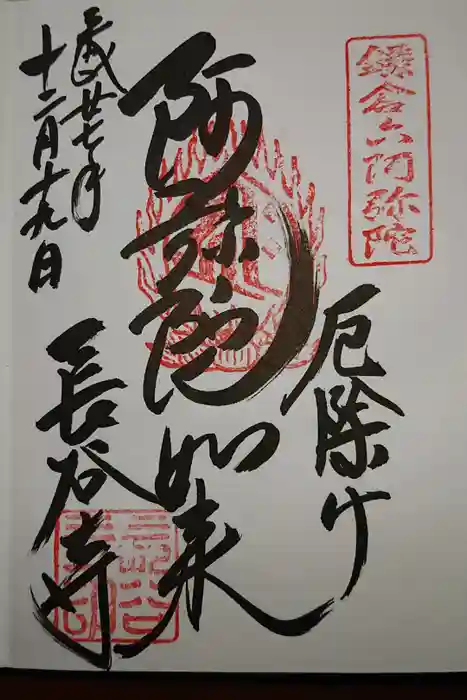 鎌倉六阿弥陀
厄除け
阿弥陀如来
平成廿七年
十二月十九日
長谷寺